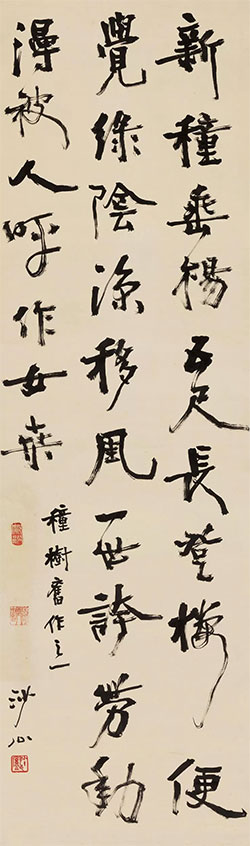 新種垂楊五尺長登樓便
覺綠陰涼移風一世誇勞動
得被人呼作女桑
種樹舊作之一